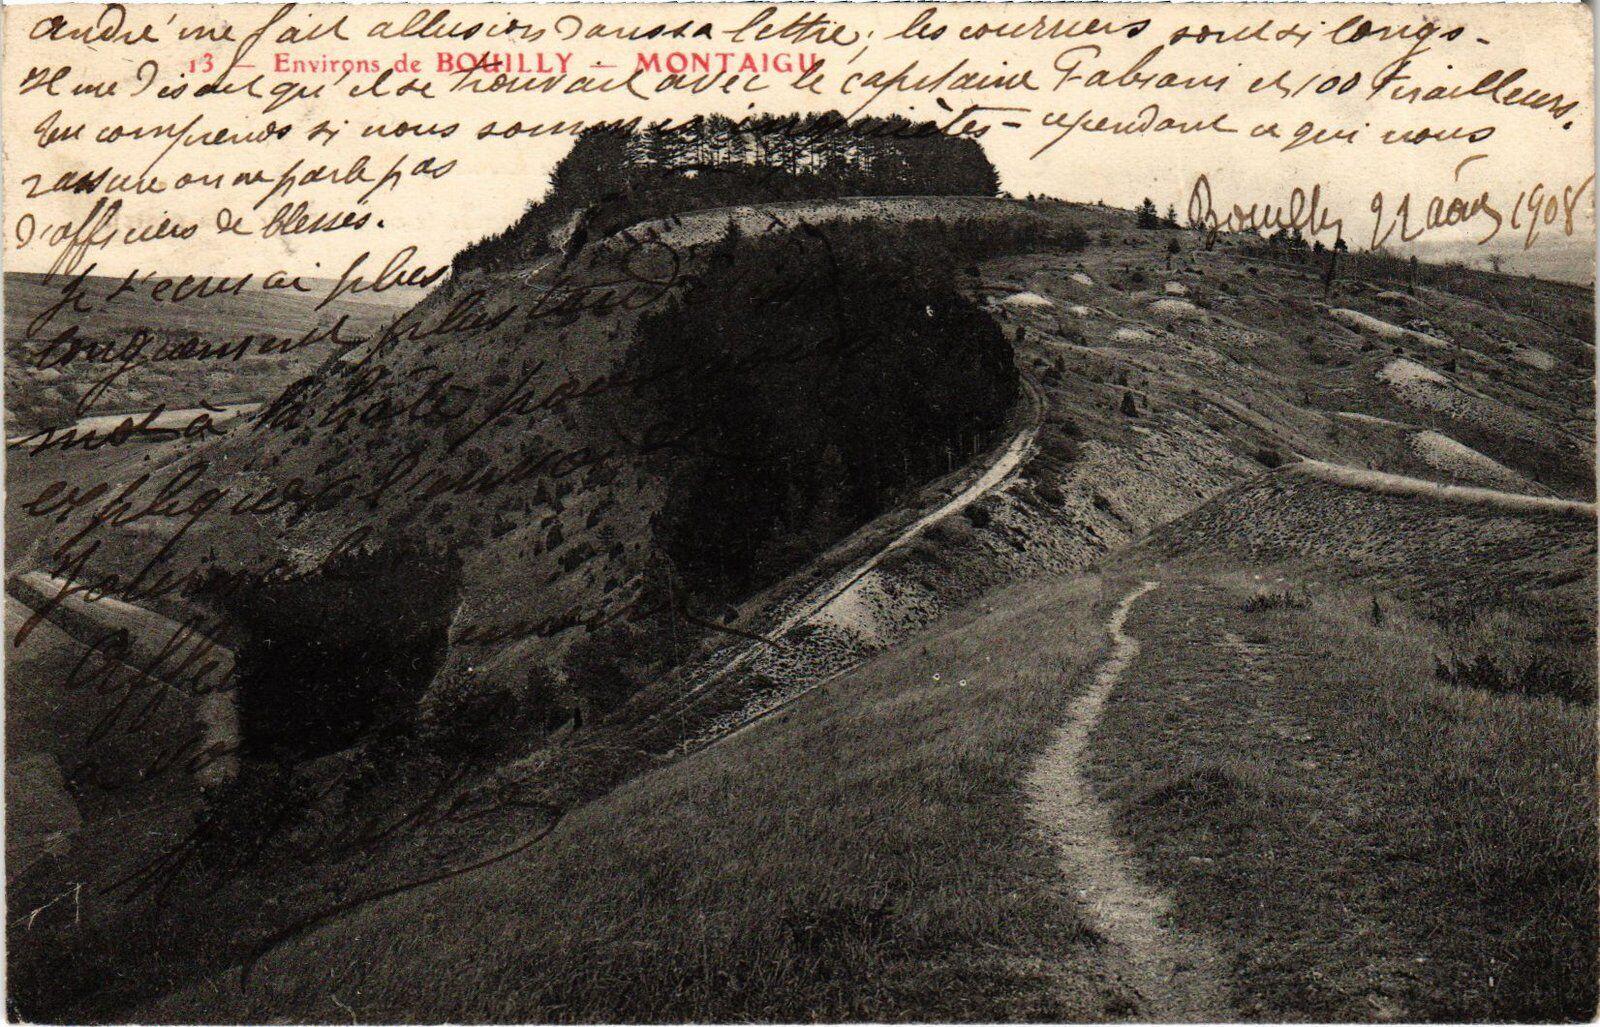 andré me fait allusion dans sa lettre; les courriers sont si longs -
13 — Environs de BOUILLY — MONTAIGU
Il me disait qu'il se trouvait avec le capitaine Fabiani et 100 Tirailleurs.
tu comprends si nous sommes inquiètes - cependant ce qui nous
rassure on ne parle pas
d'officiers de blessés.
Bouilly 22 août 1908
Je t'écrirai plus
longuement plus tard
mot à la hâte pour
expliquer l'envoi
Affec
à vous